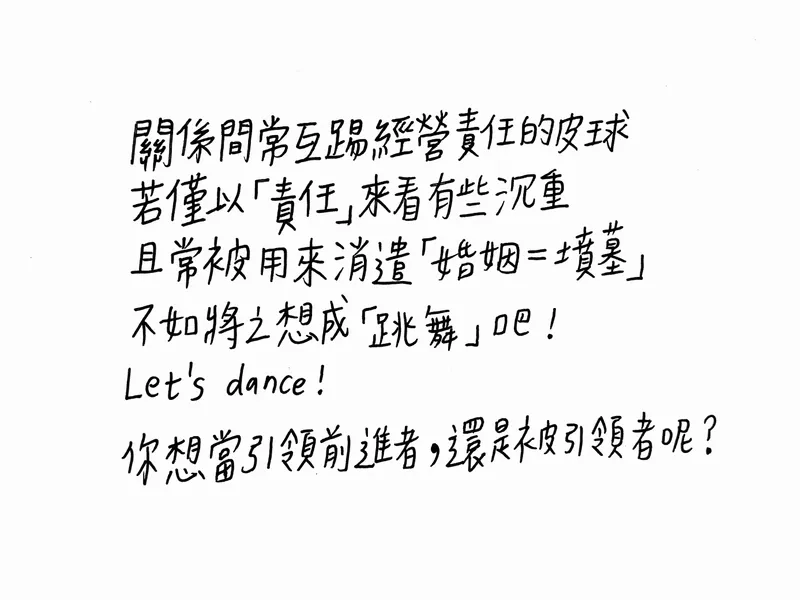 關係間常互踢經營責任的皮球
若僅以「責任」來看有些沉重
且常被用來消遣「婚姻=墳墓」
不如將之想成「跳舞」吧!
Let's dance!
你想當引領前進者,還是被引領者呢?